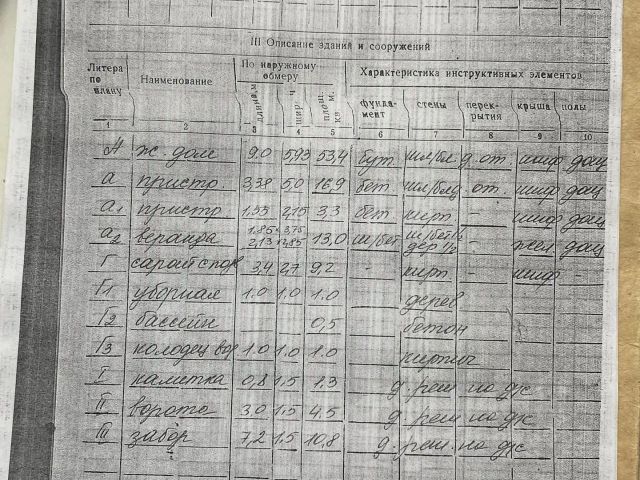 III Описание зданий и сооружений
Литера по плану Наименование По наружному обмеру Характеристика инструктивных элементов
длина, м шир. ч площ. кв м. фунда-мент стены перек-рытия крыша полы
1 2 3 4 5 6 7 8 9 10
А ж. дом 9,0 5,93 53,4 бут. шл/бл д. от. шиф дощ
а пристр. 3,38 5,0 16,9 бет. шл/бл д. от. шиф дощ
а1 пристр. 2,15 3,3 бет. кирп. - шиф дощ
а2 веранда 1,85 × 3,75 13,0 ш/бет - жел дощ
2,13 × 2,85 дер
Г сарай 3,4 2,7 9,2 - кирп - шиф -
Г1 уборная 1.0 1.0 1.0 дерев
Г2 бассейн 0,5 бетон
Г3 колодец 1.0 1.0 1.0
I калитка 0,8 1,5 1.3 д. реш на дж
II ворота 3.0 1,5 4,5 д. реш на дж
III забор 7,2 1,5 10,8 д. реш. на дж